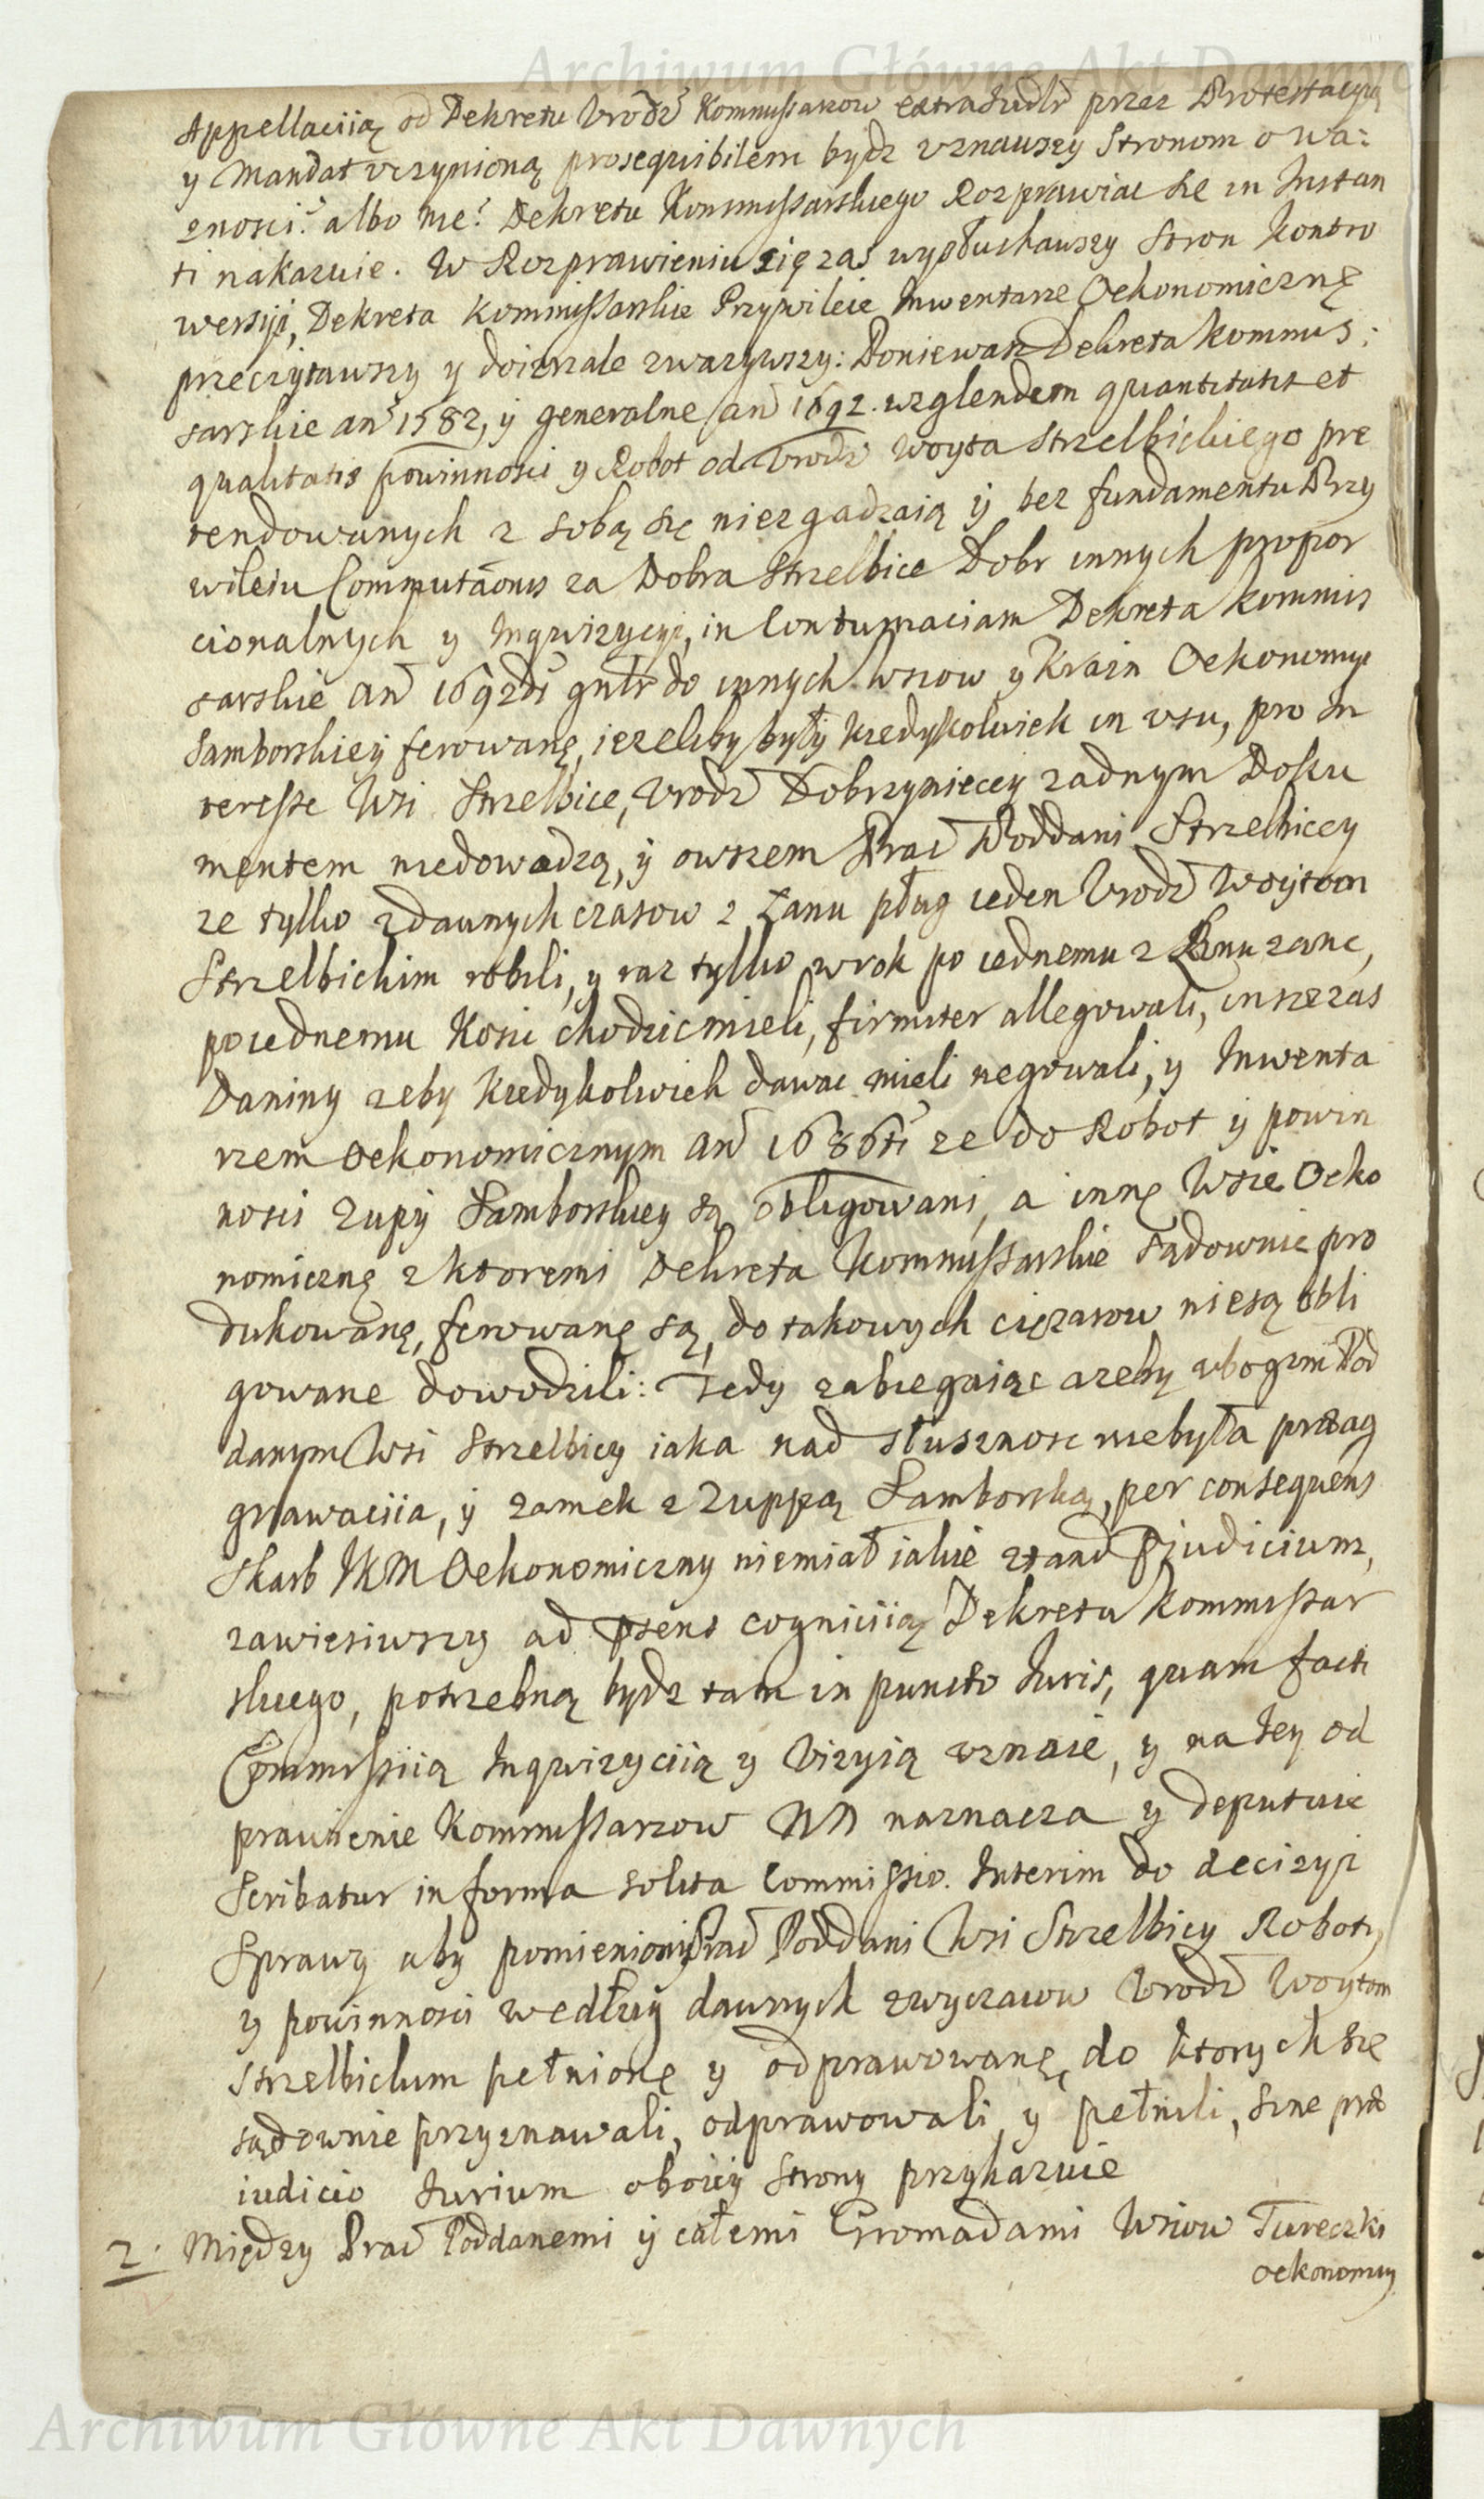 Archiwum Główne Akt Dawnych
Appellaciią od Dekretu Vrodz Kommissarzow extrajudlr przez Protestacyą
y Mandat vczynioną prosequibilem bydz vznawszy Stronom o wa:
znosci? albo nie? Dekretu Kommissarskiego Rozprawiac się in Instan
ti nakazuie. W Rozprawieniu się zas wysłuchawszy stron kontro
wersyi, Dekreta Kommissarskie Przywileie Inwentarze Oekonomicznę
przeczytawszy y doirzale zwazywszy: Poniewasz Dekreta kommis:
sarskie an 1582, y generalne an 1692. wzglendem quantitatis et
qualitatis powinnosci y Robot od Vrodz Woyta strzelbickiego pre
tendowanych z sobą się niezgadzaią y bez fundamentu Przy
wileiu Commutaonis za Dobra Strzelbice Dobr innych propor
cionalnych y Inqwizycyi, in Contumaciam Dekreta kommis
sarskie an 1692di gnlr do innych wsiow y Krain Oekonomyi
Samborskiey ferowanę, iezeliby były kiedykolwiek in vsu, pro In
teresse Wsi Strzelbice, Vrodz Dobrzynieccy zadnym Doku
mentem niedowadzą, y owszem Prac Poddani Strzelbiccy
ze tylko zdawnych czasow z Łanu pług ieden Vrodz Woytom
Strzelbickim robili, y raz tylko w rok po iednemu z Łanu zanc,
poiednemu kosic chodzic mieli, firmiter allegowali, insze zas
Daniny zeby kiedykolwiek dawac mieli negowali, y Inwenta
rzem Oekonomicznym an 1686ti ze do Robot y powin
nosci Zupy Samborskiey są obligowani, a innę Wsie Oeko
nomicznę z ktoremi Dekreta Kommissarskie sądownie pro
dukowanę, ferowanę są, do takowych cięzarow niesą obli
gowane dowodzili: Tedy zabiegaiąc azeby vbogim Pod
danym Wsi Strzelbicy iaka nad słusznosc niebyła przeag
grawaciia, y zamek z Zuppą Samborską, per consequens
Skarb JKM Oekonomiczny niemiał iakie ztand pjudicium,
zawiesiwszy ad psens cogniciią Dekretu Kommissar
skiego, potrzebną bydz tam in puncto Iuris, quam facti
Commissiią Inqwizyciią y Wizyią vznaie, y na Iey od
prawienie Kommissarzow NN naznacza y deputuie
Scribatur in forma solita Commissio. Interim do decizyi
Sprawy aby pomienioni Prac Poddani Wsi Strzelbicy Roboty,
y powinnosci według dawnych zwyczaiow Vrodz Woytom
strzelbickim pełnionę y odprawowanę, do ktorych się
sądownie przyznawali, odprawowali y pełnili, sine prae
iudicio Iurium oboiey strony przykazuie
2. Między Prac Poddanemi y całemi Gromadami Wsiow Tureczki
oekonomiy
Archiwum Główne Akt Dawnych